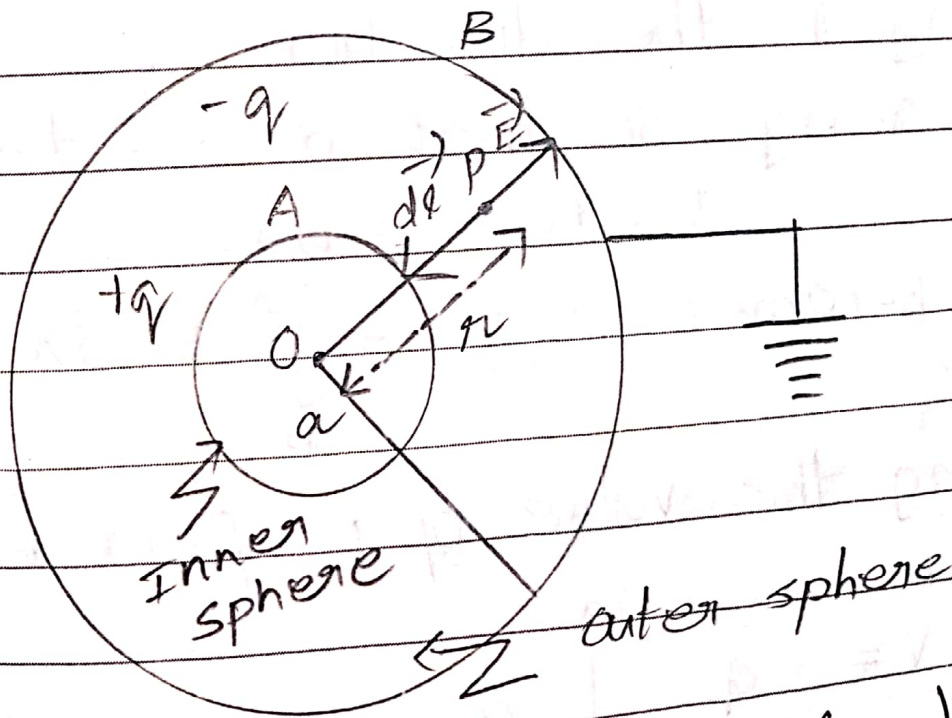 B
-q
E
dl
P
A
+q
r
O
a
Inner
sphere
outer sphere